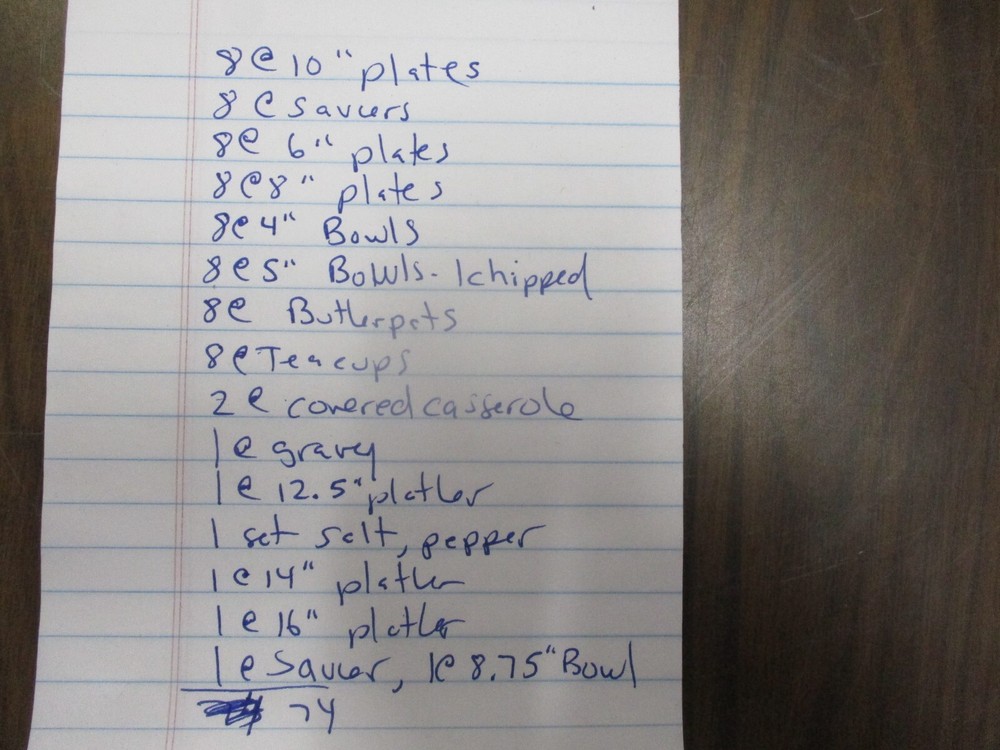 8 @ 10" plates
8 @ saucers
8@ 6" plates
8@8" plates
8@ 4" Bowls
8@5" Bowls - 1 chipped
8@ Butterpats
8@ Teacups
2 @ covered casserole
1 @ gravy
1 @ 12.5" platter
1 set salt, pepper
1 @ 14" platter
1 @ 16" platter
1 @ Saucer, 1@ 8.75" Bowl
74